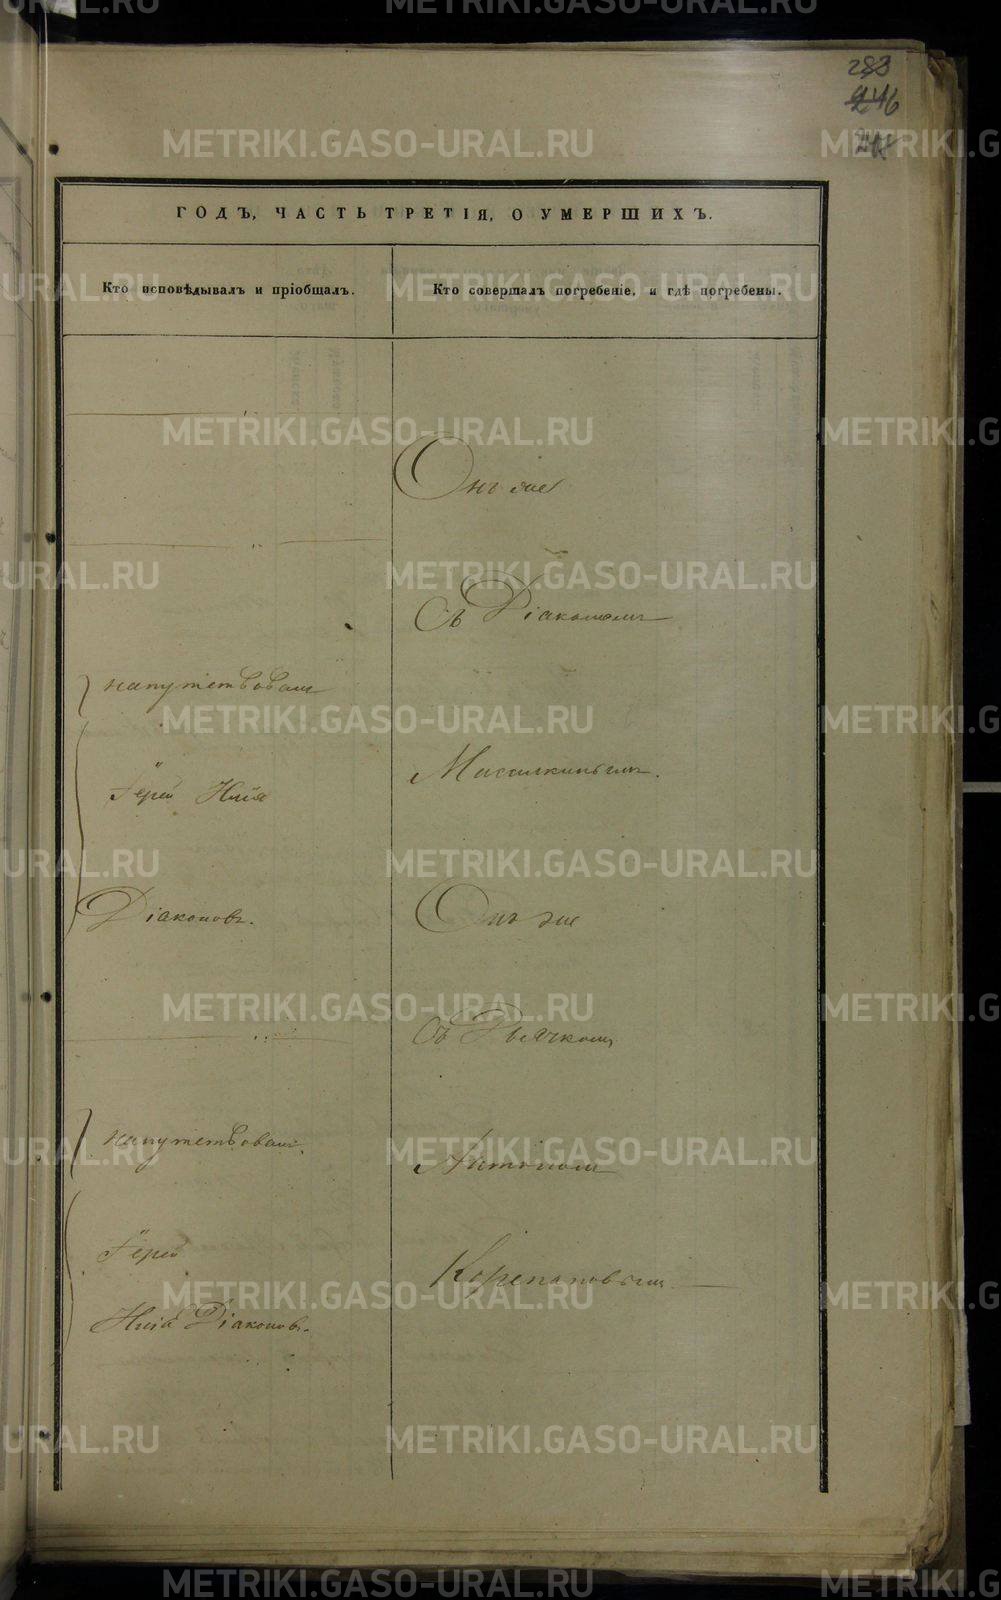 283
246
ГОДЪ, ЧАСТЬ ТРЕТІЯ, О УМЕРШИХЪ.
Кто исповѣдывалъ и пріобщалъ.
Кто совершалъ погребеніе, и гдѣ погребены.
Онъ же
Съ Діакономъ
напутствовалъ
Іерей
Діаконовъ.
Онъ же
Съ Дьячкомъ
напутствовалъ
Іерей
Діаконовъ.
Корепановымъ
METRIKI.GASO-URAL.RU